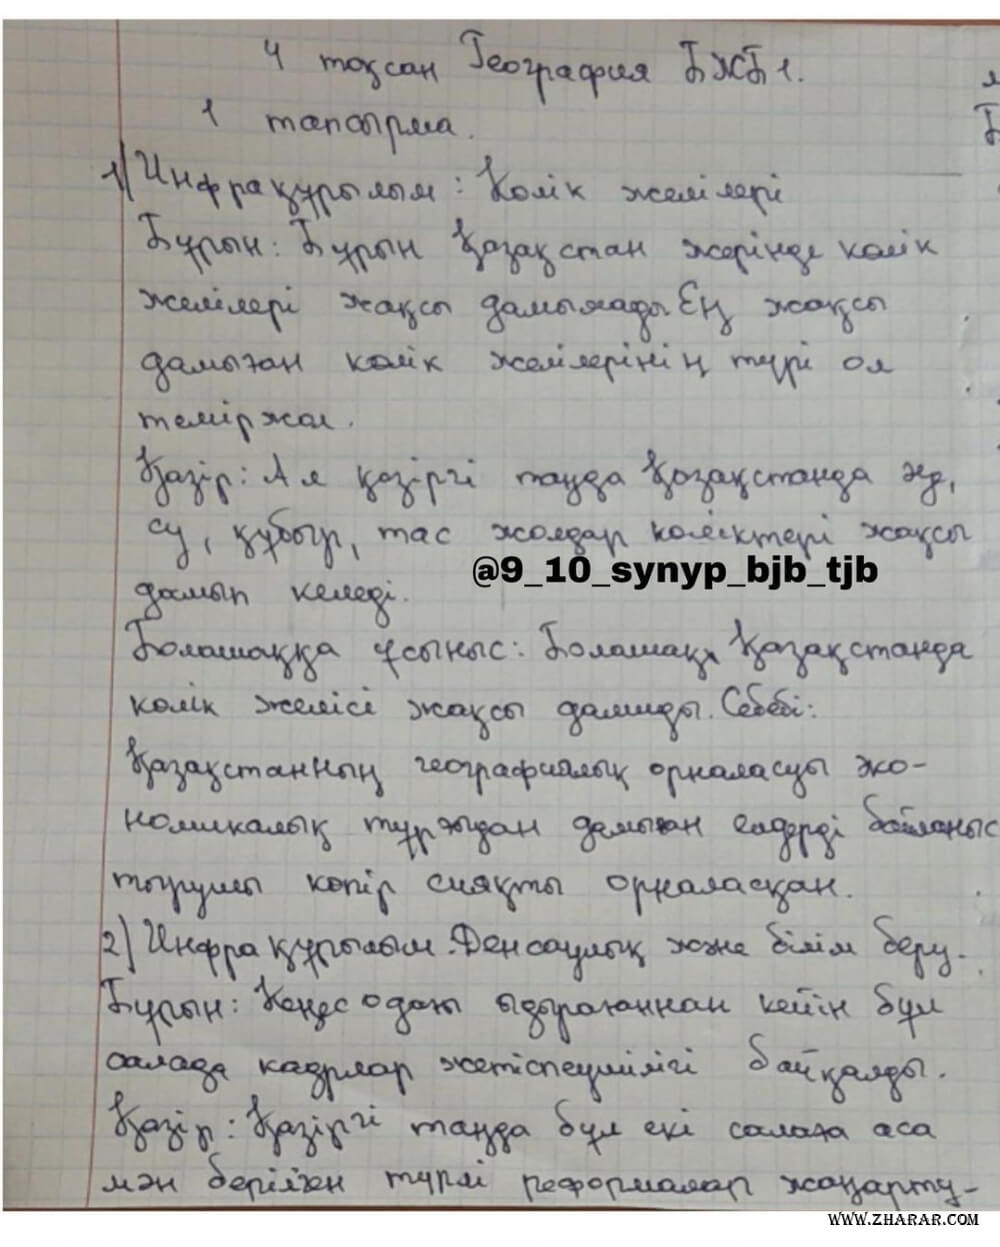 4 тоқсан География БЖБ 1.
1 тапсырма.
1) Инфрақұрылым: Көлік желілері
Бұрын: Бұрын Қазақстан жерінде көлік
желілері жақсы дамымады Ең жақсы
дамыған көлік желілерінің түрі ол
теміржол.
Қазір: Ал қазіргі таңда Қазақстанда әуе,
су, құбыр, тас жолдар көліктері жақсы
@9_10_synyp_bjb_tjb
дамып келеді.
Болашаққа ұсыныс: Болашақ Қазақстанда
көлік желісі жақсы дамиды. Себебі:
Қазақстанның географиялық орналасуы эко-
номикалық тұрғыдан дамыған елдерді байланыс
тырушы көпір сияқты орналасқан.
2) Инфрақұрылым. Денсаулық және білім беру.
Бұрын: Кеңес одағы ыдырағаннан кейін бұл
салада кадрлар жетіспеушілігі байқалды.
Қазір: Қазіргі таңда бұл екі салаға аса
мән берілген түрлі реформалар жаңарту-
WWW.ZHARAR.COM